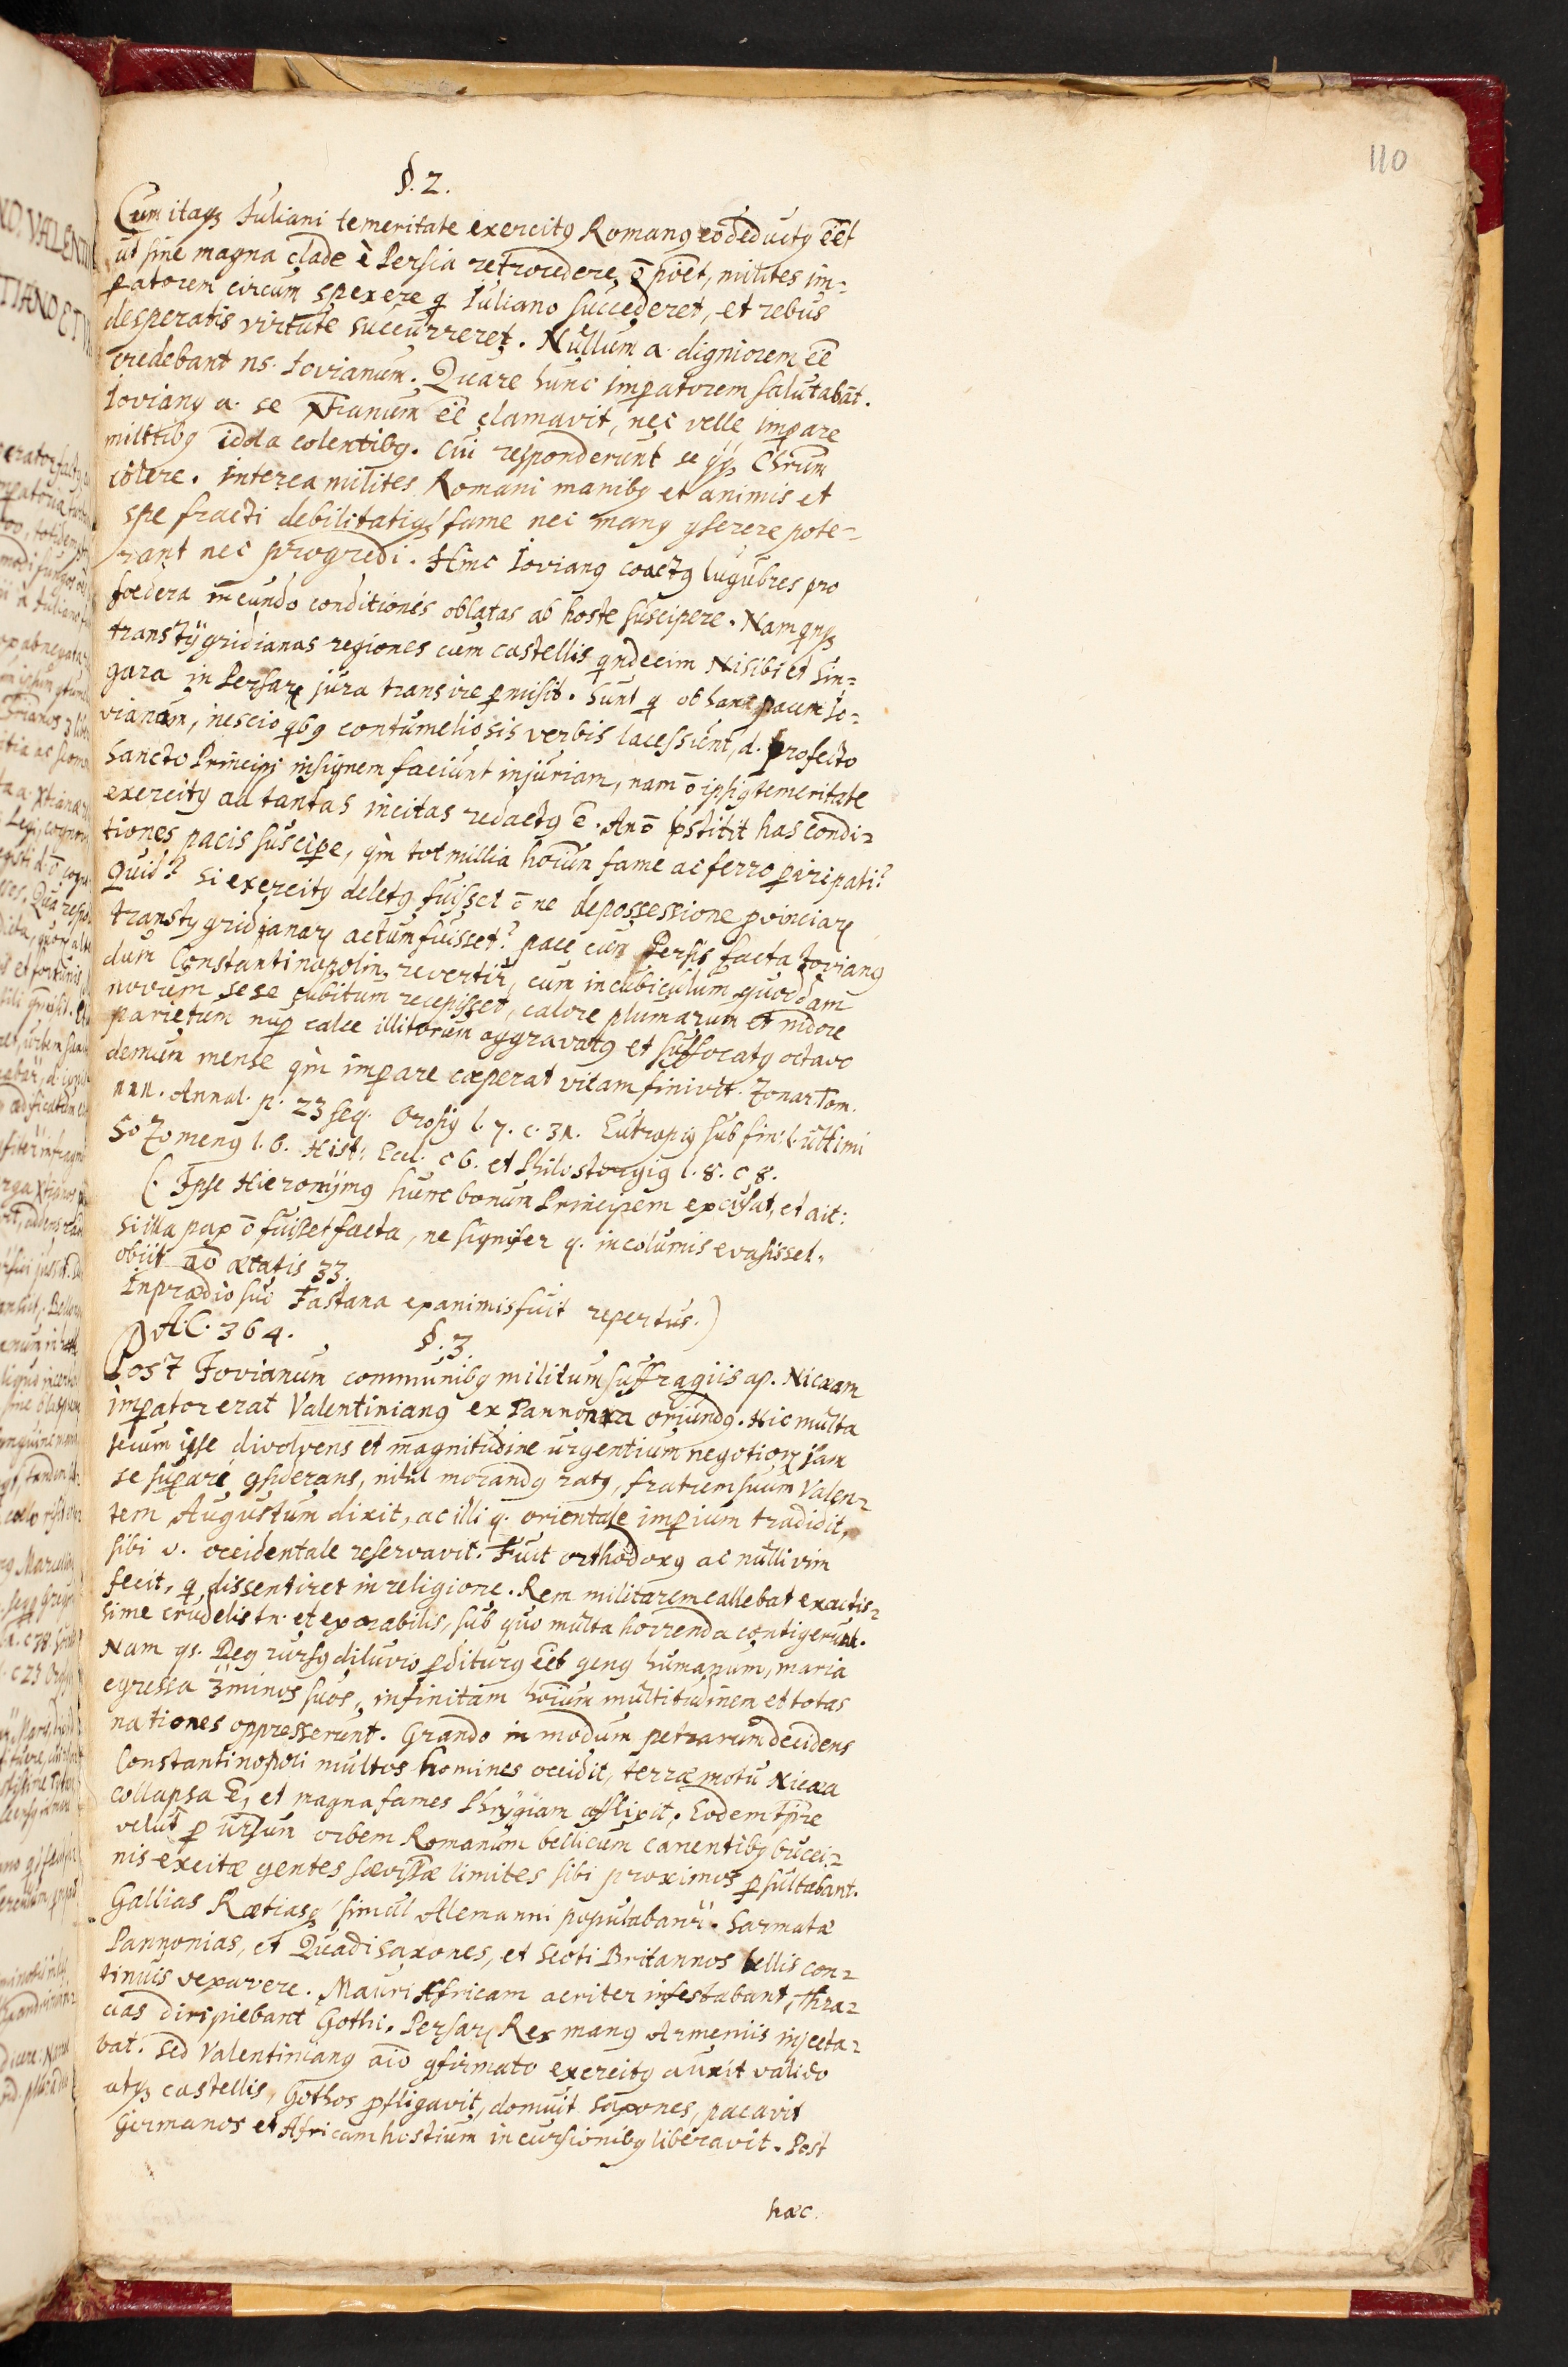 110
§. 2.
Cum itaqꝫ Iuliani temeritate exercitꝰ Romanꝰ eo deductꝰ eēt
ut sine magna clade è Persia retrocedere ō poēt, milites im=
ꝑatorem circum spexere q̄ Iuliano succederet, et rebus
desperatis virtute succurreret. Nullum a. digniorem eē
credebant ns. Iovianum. Quare hunc imꝑatorem salutabāt.
Iovianꝰ a. se Xtianum eē clamavit, nec velle imꝑare
militibꝰ idola colentibꝰ. Cui responderunt se qqꝫ Chrūm
colere. Interea milites Romani manibꝰ et animis et
spe fracti debilitatiqꝫ fame nec manꝰ ꝯserere pote=
rant nec progredi. Hinc Iovianꝰ coactꝰ lugubres pro
foedera ineundo conditiones oblatas ab hoste suscipere. Nam qnqꝫ
transtÿgridianas regiones cum castellis qndecim Nisibi et Sin=
gara in Persarꝝ jura transire ꝑmisit. Sunt q̄ ob hanc pacem Io=
vianum, nescio qbꝰ contumeliosis verbis lacessunt, d. profecto
sancto Principi insignem faciunt injuriam, nam ō ipsiꝰ temeritate
exercitꝰ ad tantas incitas redactꝰ ē. An ō pstitit has condi=
tiones pacis suscipe, qm̀ tot millia hoium fame ac ferro ꝑire pati?
Quid? si exercitꝰ deletꝰ fuisset ō ne de possessione ꝓvinciarꝝ
transtygridianarꝝ actum fuisset? pace cum Persis facta Iovianꝰ
dum Constantinopolin revertit, cum in cubiculum quoddam
novum sese cubitum recepisset, calore plumarum et nidore
parietum nuꝑ calce illitorum aggravatꝰ et suffocatꝰ octavo
demum mense qm̀ imꝑare cœperat vitam finivit. Zonar. Tom.
III. Annal. p. 23 seq. Orosiꝰ l. 7. c. 31. Eutropiꝰ sub fin: l. ultimi
Sozomenꝰ l. 6. Hist: Eccl. c 6. et Philostorgiꝰ l. 8. c 8.
(. Ipse Hieronÿmꝰ hunc bonum Principem excusat, et ait:
si illa pax ō fuisset facta, ne signifer q. incolumis evasisset.
obiit aō ætatis 33.
In prædio suo Tastana exanimis fuit repertus.)
A. C. 364. §. 3.
Post Iovianum communibꝰ militum suffragiis ap. Nicæam
imꝑator erat Valentinianꝰ ex Pannonia oriundꝰ. Hic multa
secum ipse divolvens et magnitudine urgentium negotiorꝝ jam
se suꝑari ꝯsiderans, nihil morandꝰ ratꝰ, fratrem suum Valen=
tem Augustum dixit, ac illi q. orientale imꝑium tradidit,
sibi v. occidentale reservavit. Fuit orthodoxꝰ ac nulli vim
fecit, q̄ dissentiret in religione. Rem militarem callebat exactis=
sime crudelis tn. et exorabilis, sub quo multa horrenda contigerunt.
Nam qs. Deꝰ rursꝰ diluvio ꝑditurꝰ eēt genꝰ humanum, maria
egressa 3minos suos, infinitam hoium multitudinem et totas
nationes oppresserunt. Grando in modum petrarum decidens
Constantinopoli multos homines occidit, terræ motu Nicæa
collapsa ē, et magna fames Phrÿgiam afflixit. Eodem tp̄re
velut ꝑ ursum orbem Romanum bellicum canentibꝰ bucci=
nis excitæ gentes sævissæ limites sibi proximos ꝑsultabant.
Gallias Rætiasqꝫ simul Alemanni populabanr̃. Sarmatæ
Pannonias, et Quadi Saxones, et Scoti Britannos bellis con=
tinuis vexavere. Mauri Africam acriter infestabant, Thra=
cias diripiebant Gothi. Persarꝝ Rex manꝰ Armeniis injecta=
bat. Sed Valentinianꝰ aio ꝯfirmato exercitꝰ auxit valido
atqꝫ castellis, Gothos ꝓfligavit, domuit Saxones, pacavit
Germanos et Africam hostium incursionibꝰ liberavit. Post
hæc.